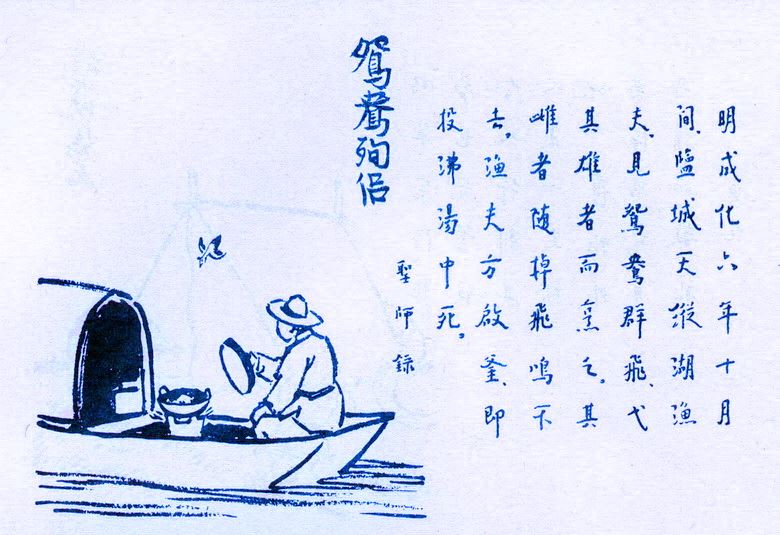 明成化六年十月
間、鹽城天縱湖漁
夫、見鴛鴦群飛、弋
其雄者而烹之。其
雌者随棹飛鳴不
去。漁夫方啟釜、即
投沸湯中死。
聖師錄
鴛鴦殉侣